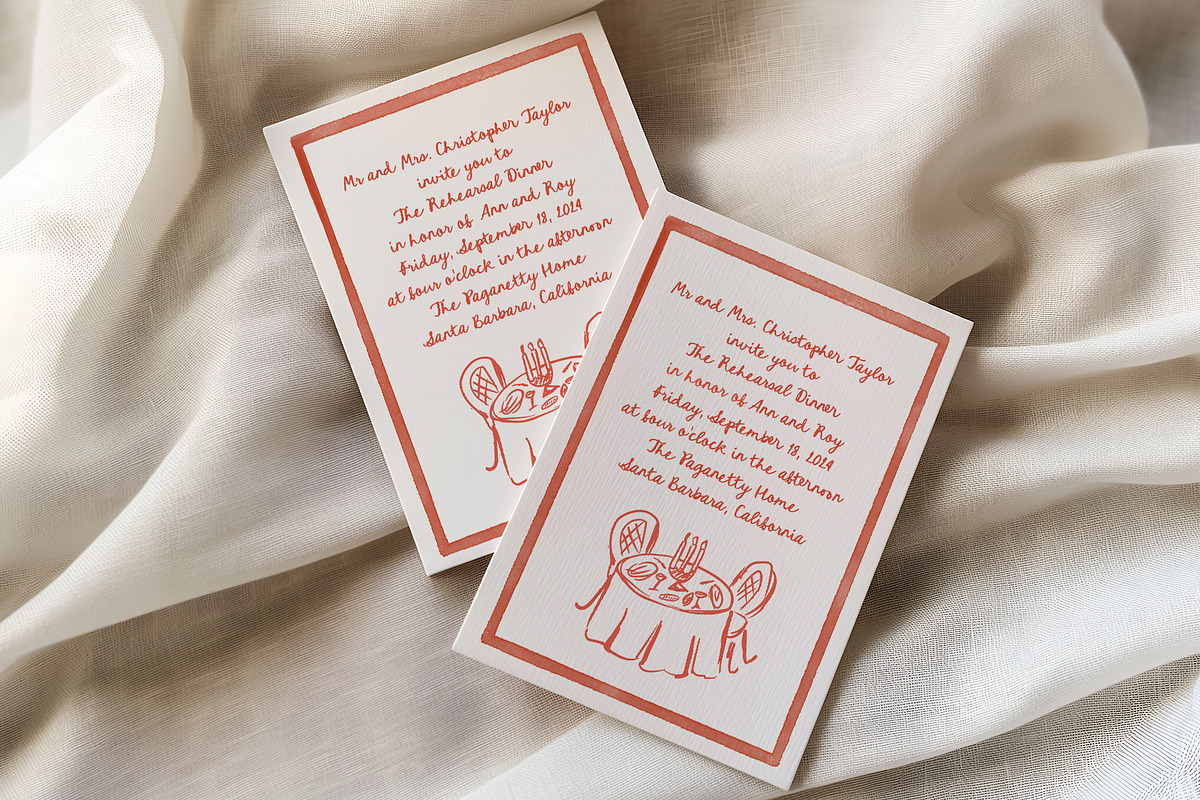 Mr and Mrs. Christopher Taylor
invite you to
The Rehearsal Dinner
in honor of Ann and Roy
Friday, September 18, 2024
at four o'clock in the afternoon
The Paganetty Home
Santa Barbara, California
Mr and Mrs. Christopher Taylor
invite you to
The Rehearsal Dinner
in honor of Ann and Roy
Friday, September 18, 2024
at four o'clock in the afternoon
The Paganetty Home
Santa Barbara, California